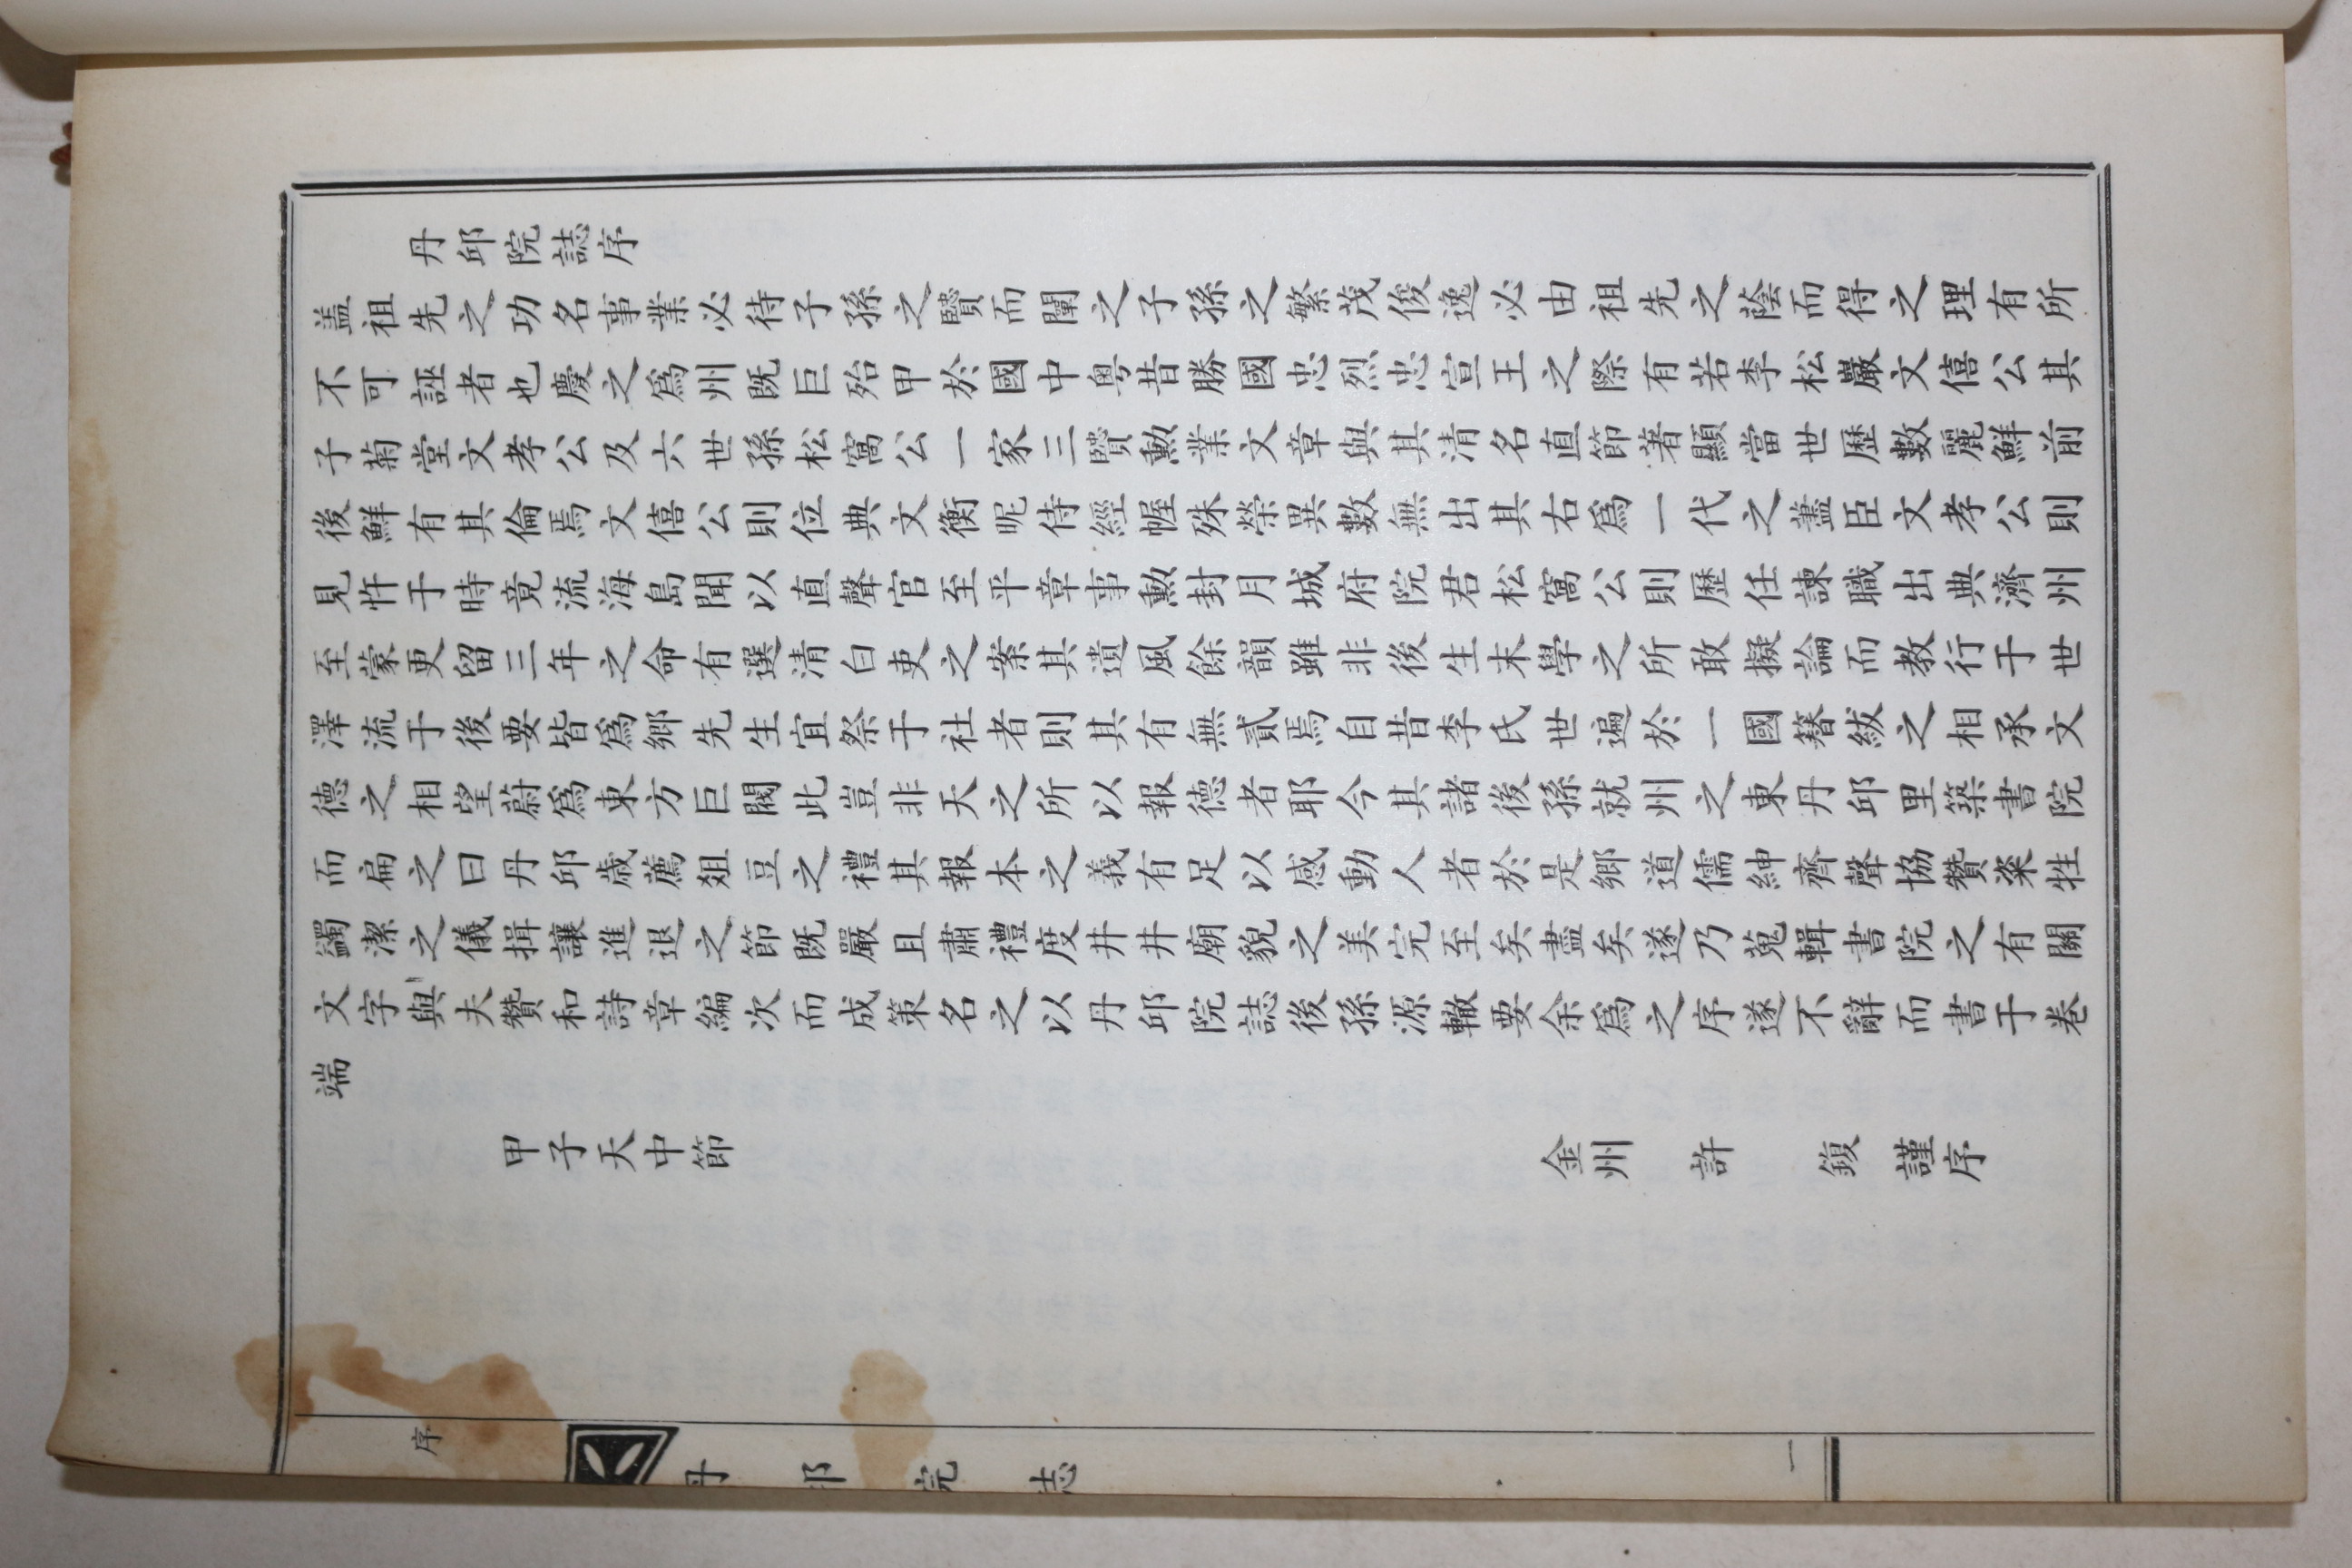 丹邱院誌序
盖祖先之功名事業必待子孫之賢而闡之子孫之繁茂俊逸必由祖先之蔭而得之理有所
不可誣者也慶之爲州既巨殆甲於國中粤昔勝國忠烈忠宣王之際有若李松巖文僖公其
子菊堂文孝公及六世孫松窩公一家三賢勲業文章與其清名直節著顯當世歷數麗鮮前
後鮮有其倫焉文僖公則位典文衡昵侍經幄殊榮異數無出其右爲一代之藎臣文孝公則
見忤于時竟流海島聞以直聲官至平章事勲封月城府院君松窩公則歷任諫職出典濟州
至蒙更留三年之命有選清白吏之案其遺風餘韻雖非後生末學之所敢擬論而教行于世
澤流于後要皆爲鄉先生宜祭于社者則其有無貳焉自昔李氏世遍於一國簪紱之相承文
德之相望蔚爲東方巨閥此豈非天之所以報德者耶今其諸後孫就州之東丹邱里築書院
而扁之曰丹邱歲薦俎豆之禮其報本之義有足以感動人者於是鄉道儒紳齊聲協贊粢牲
蠲潔之儀揖讓進退之節既嚴且肅禮度井井廟貌之美完至矣盡矣遂乃蒐輯書院之有關
文字與夫贊和詩章編次而成策名之以丹邱院誌後孫源轍要余爲之序遂不辭而書于卷
端
甲子天中節
金州 許 鍑 謹序
序 丹邱院誌 一